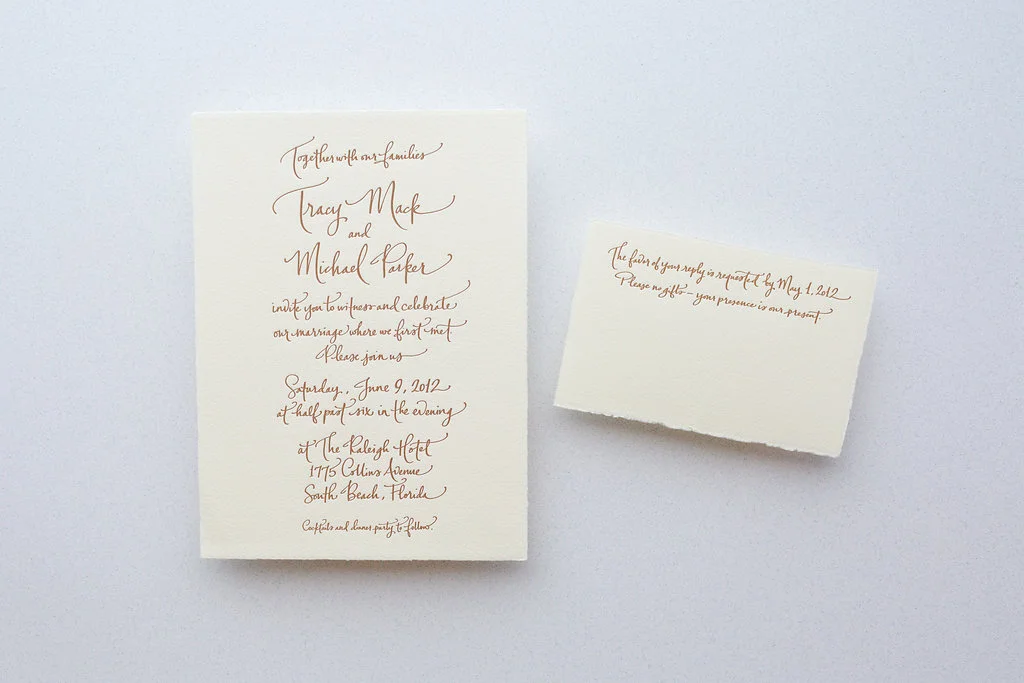 Together with our families
Tracy Mack
and
Michael Parker
invite you to witness and celebrate
our marriage where we first met.
Please join us
Saturday, June 9, 2012
at half past six in the evening
at The Raleigh Hotel
1775 Collins Avenue
South Beach, Florida
Cocktails and dinner party to follow.
The favor of your reply is requested by May 1, 2012
Please no gifts – your presence is our present.